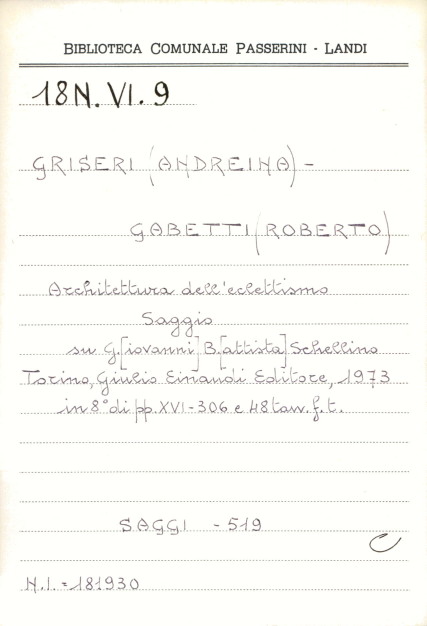 BIBLIOTECA COMUNALE PASSERINI - LANDI
18N. VI. 9
GRISERI (ANDREINA) -
GABETTI (ROBERTO)
Architettura dell'eclettismo
Saggio
su G.[iovanni] B.[attista] Schellino
Torino, Giulio Einaudi Editore, 1973
in 8° di pp. XVI-306 e 48 tav. f. t.
SAGGI - 519
C
N.I. = 181930